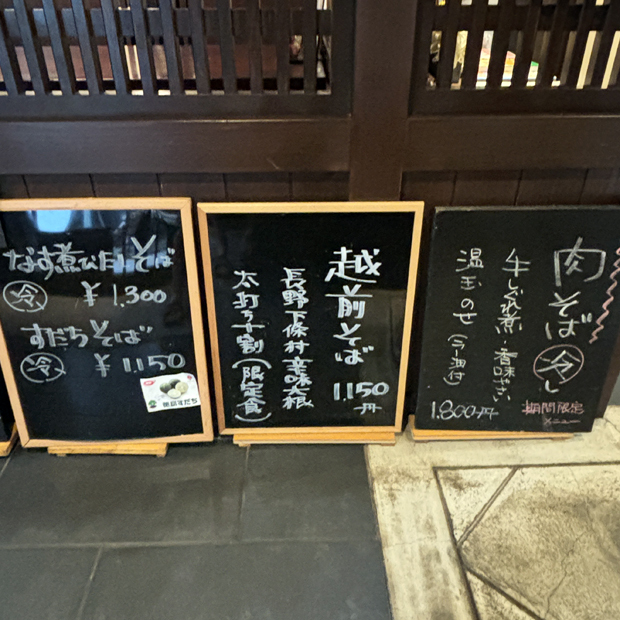 なす煮びたしそば
冷 ¥1,300
すだちそば
冷 ¥1,150
徳島すだち
越前そば
1,150円
長野下條村 辛味大根
太打ち十割(限定食)
肉そば 冷し
牛しぐれ煮・香味やさい
温玉のせ(ラー油付)
1,800円
期間限定